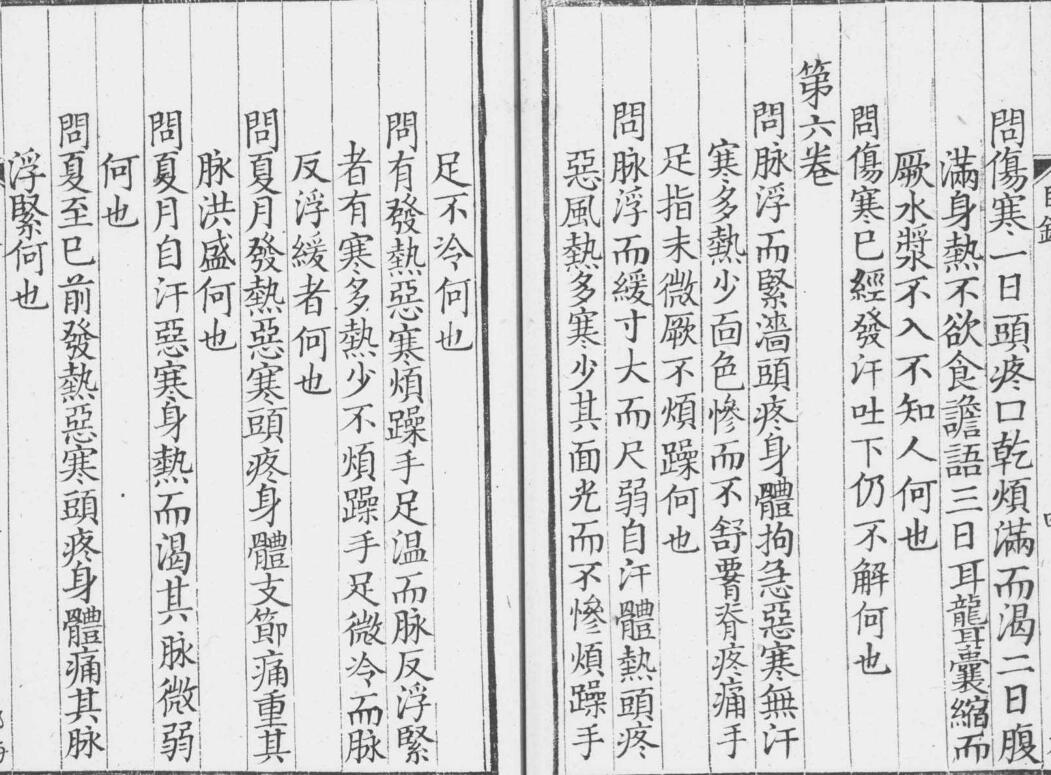 問傷寒一日頭疼口乾煩滿而渴二日腹
滿身熱不欲食譫語三日耳聾囊縮而
厥水漿不入不知人何也
問傷寒已經發汗吐下仍不解何也
第六卷
問脉浮而緊濇頭疼身體拘急惡寒無汗
寒多熱少面色慘而不舒腰脊疼痛手
足指末微厥不煩躁何也
問脉浮而緩寸大而尺弱自汗體熱頭疼
惡風熱多寒少其面光而不慘煩躁手
足不冷何也
問有發熱惡寒煩躁手足温而脉反浮緊
者有寒多熱少不煩躁手足微冷而脉
反浮緩者何也
問夏月發熱惡寒頭疼身體支節痛重其
脉洪盛何也
問夏月自汗惡寒身熱而渴其脉微弱
何也
問夏至已前發熱惡寒頭疼身體痛其脉
浮緊何也